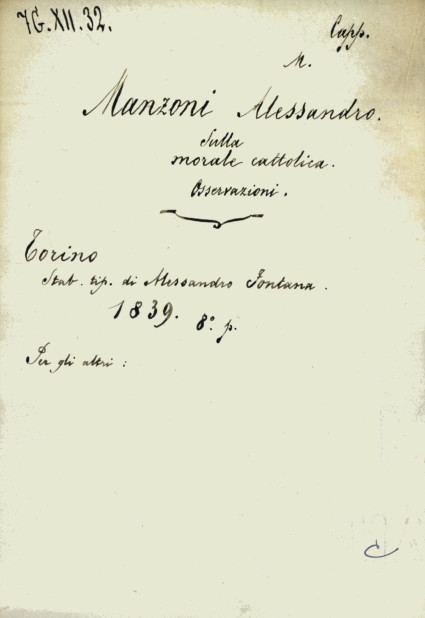 7G.XII.32.
Capp.
M.
Manzoni Alessandro.
Sulla
morale cattolica.
Osservazioni.
Torino
Stab. tip. di Alessandro Fontana.
1839. 8° p.
Per gli altri :